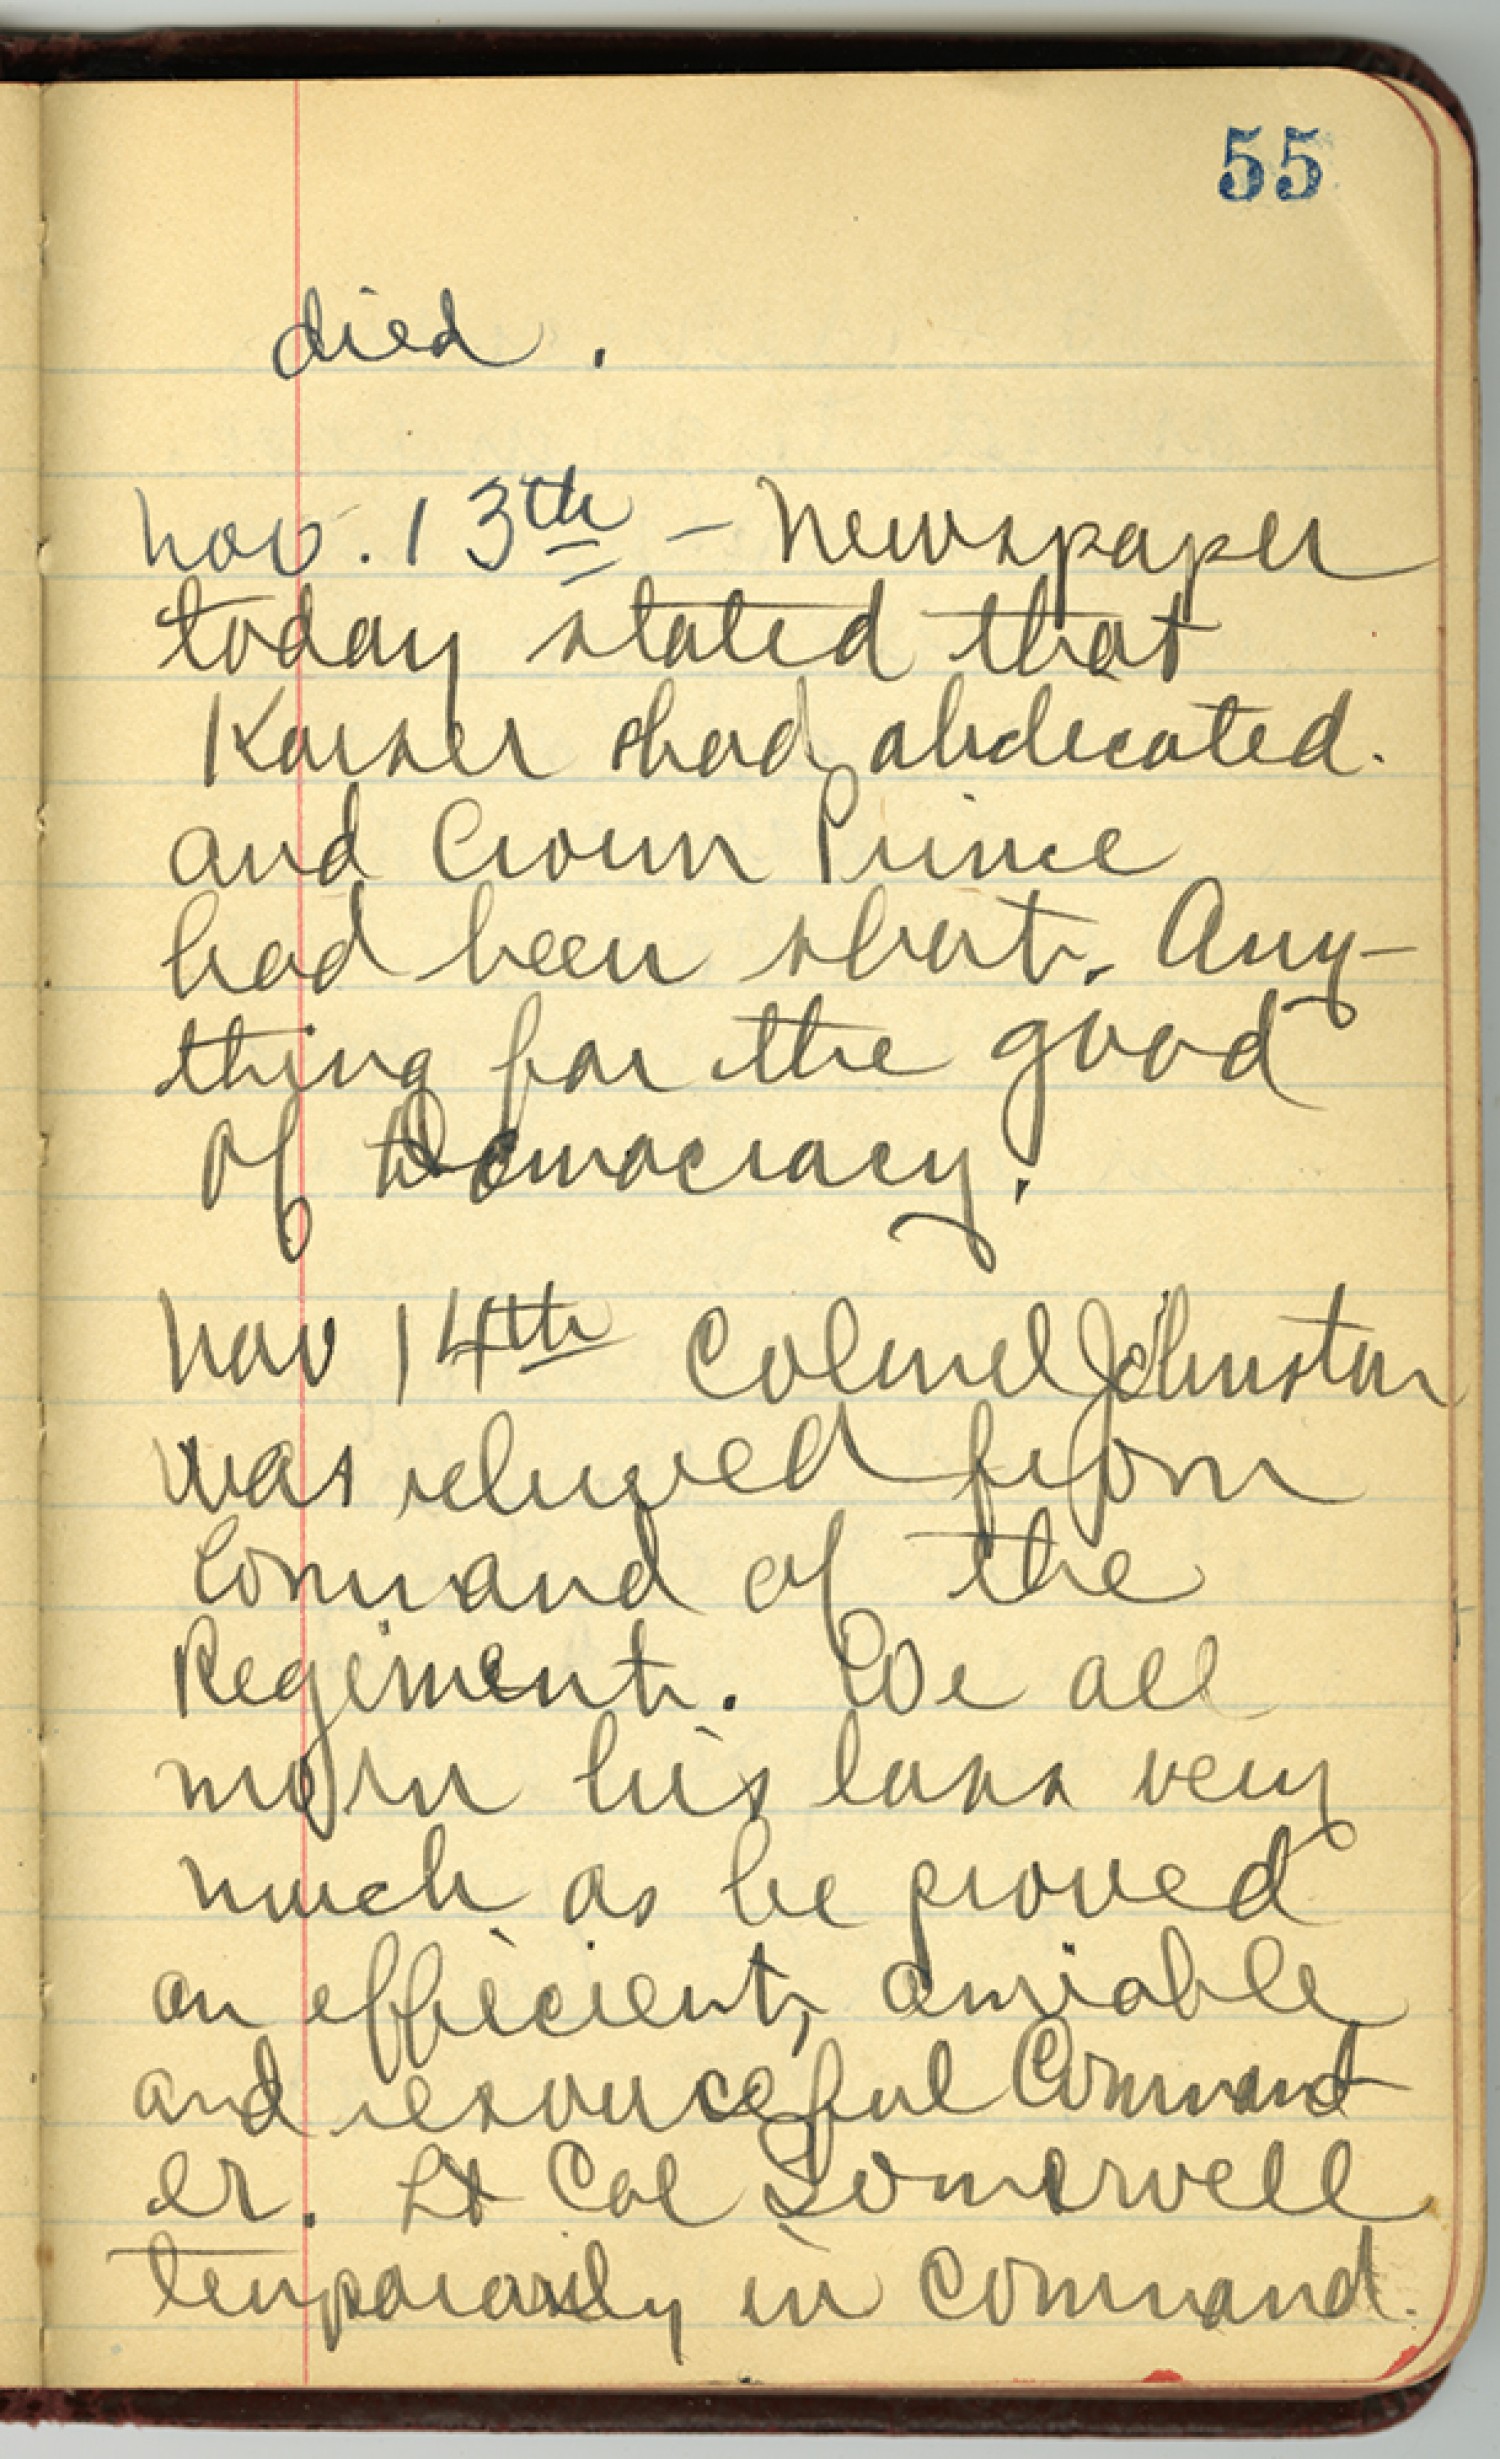 55
died.
Nov. 13th - Newspaper
today stated that
Kaiser had abdicated.
and Crown Prince
had been shot. Any-
thing for the good
of Democracy.
Nov 14th Colonel Johnston
was relieved from
Command of the
Regiment. We all
morn his loss very
much as he proved
an efficient, amiable
and resourceful Command
er. Lt Col Somervell
temporarily in command.